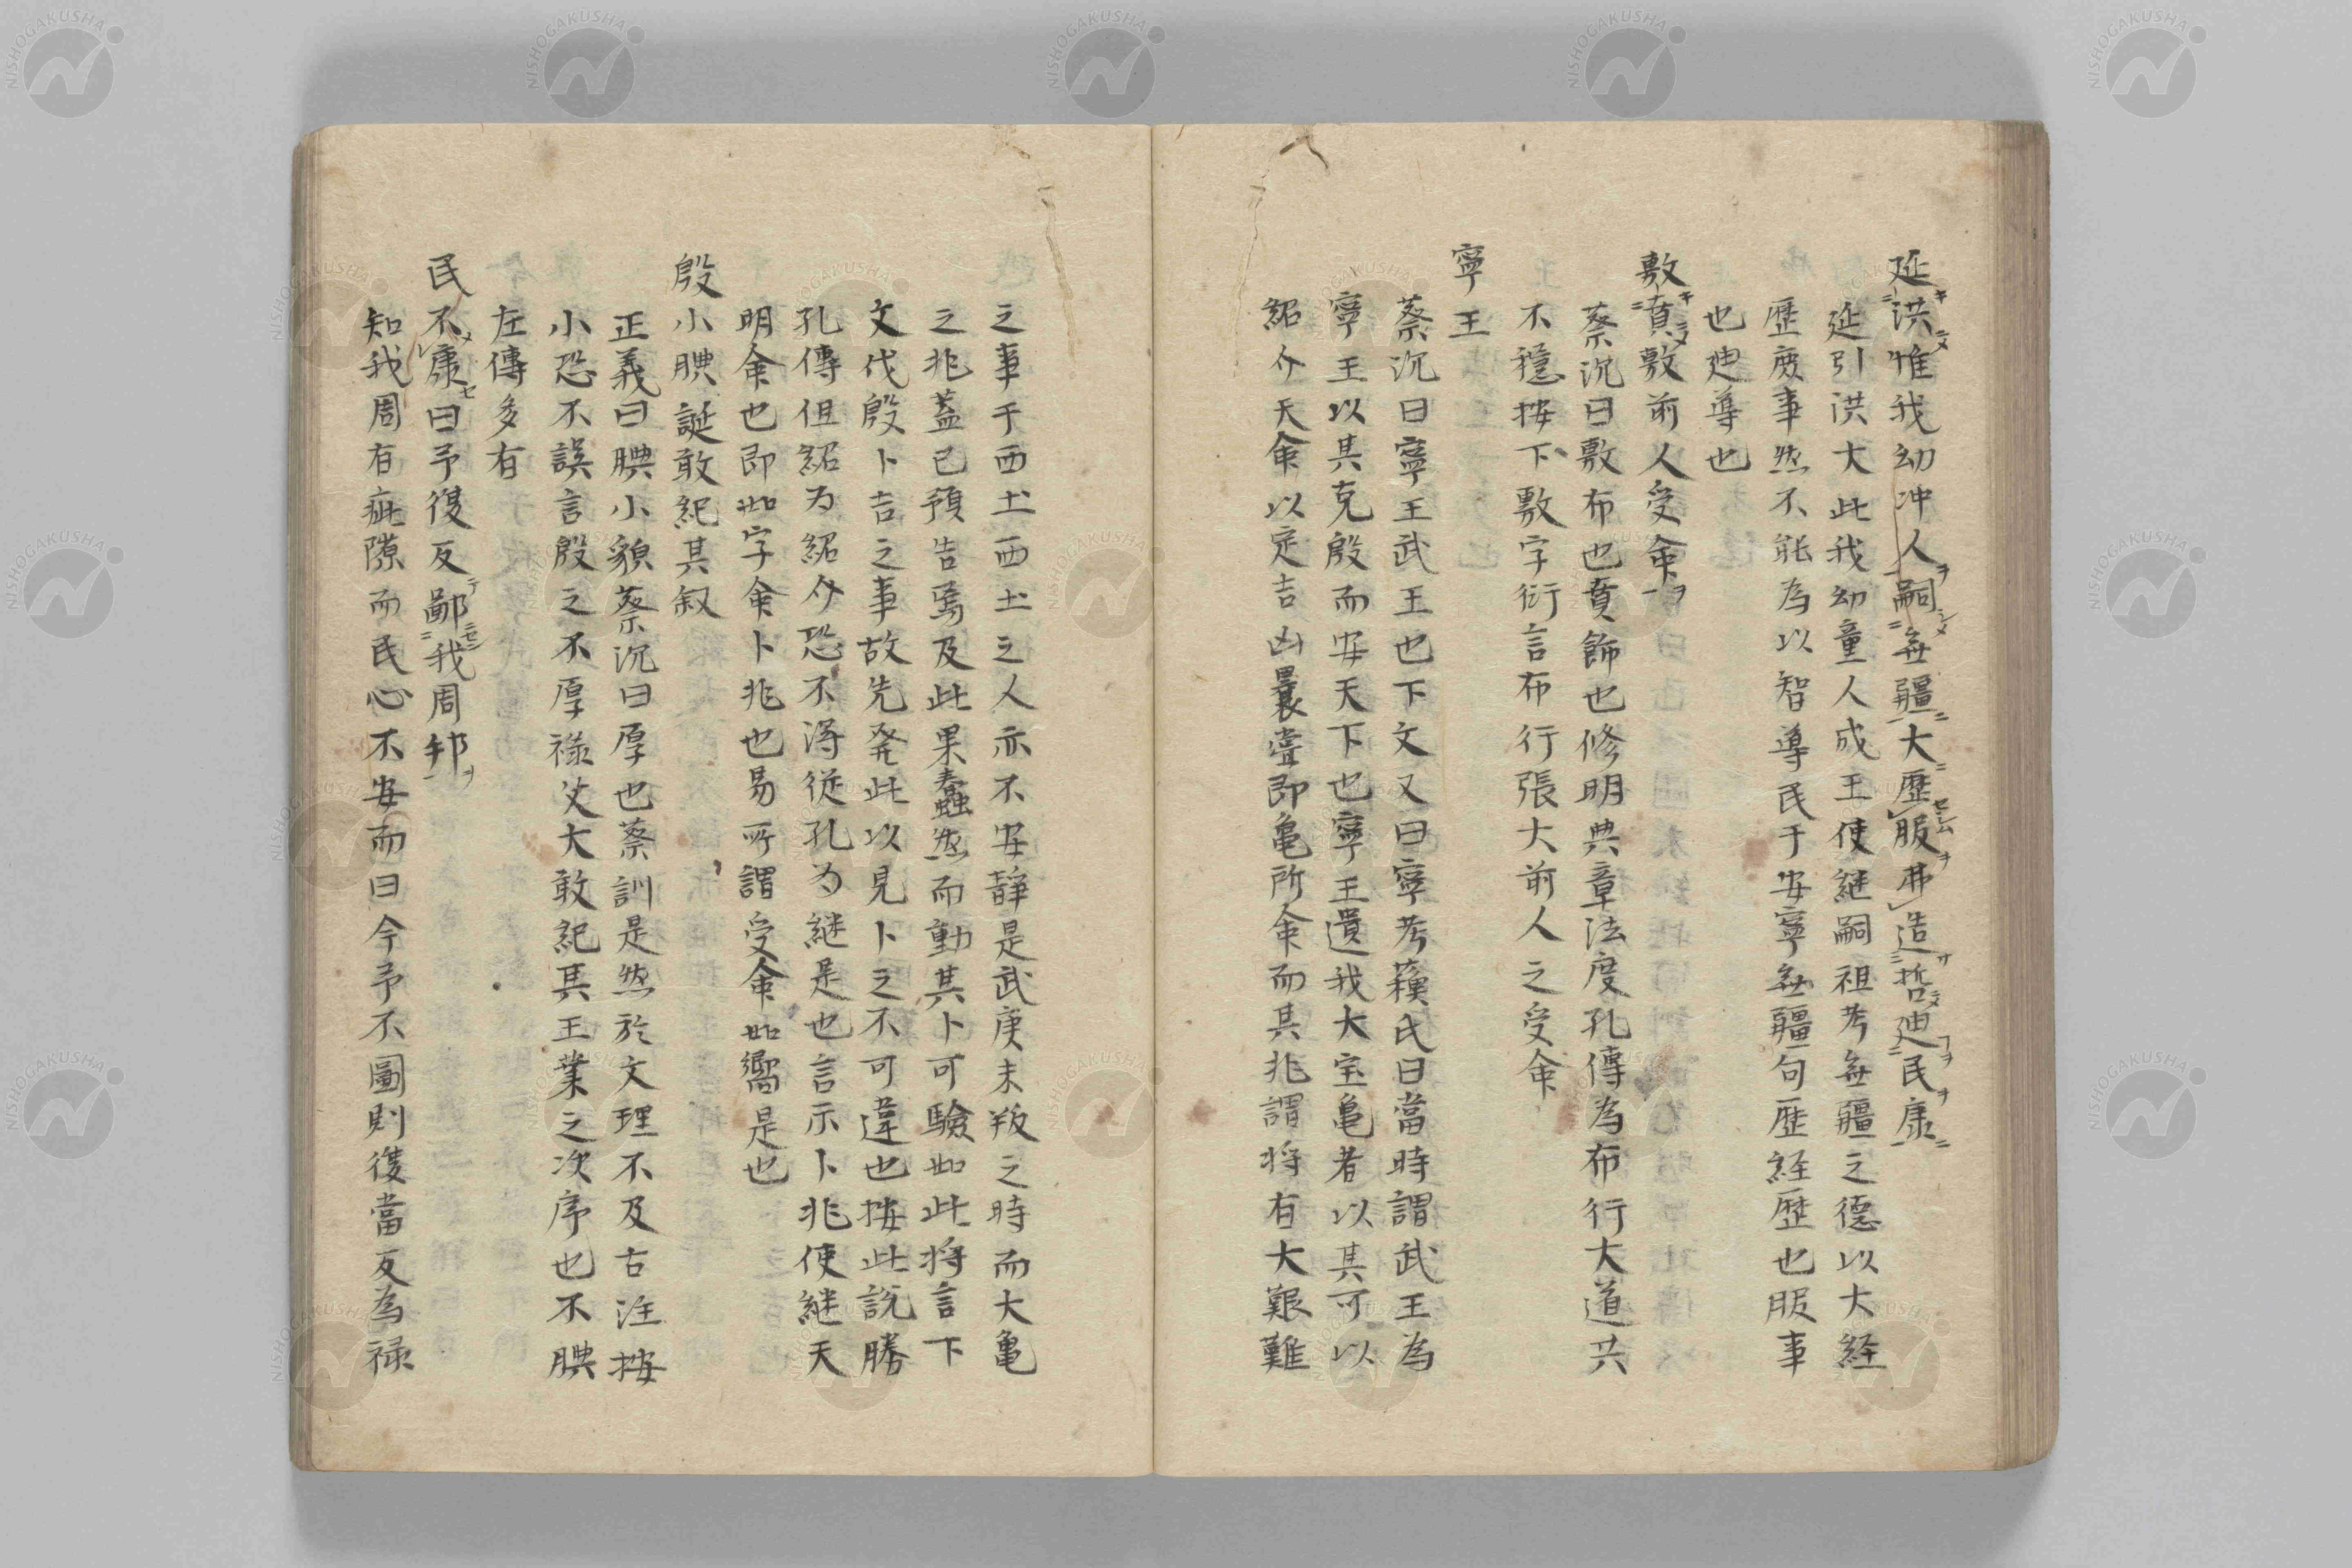 延洪惟我幼冲人嗣無疆大歴服弗造哲迪民康
延引洪大此我幼童人成王使継嗣祖考無疆之德以大経
歴庶事然不能為以智導民于安寧無疆句歴経歴也服事
也迪導也
敷賁敷前人受命
蔡沉曰敷布也賁飾也修明典章法度孔傳為布行大道共
不穏按下敷字衍言布行張大前人之受命
寧王
蔡沉曰寧王武王也下文又曰寧考蘓氏曰當時謂武王為
寧王以其克殷而安天下也寧王遺我大宝亀者以其可以
紹介天命以定吉凶曩甞即亀所命而其兆謂将有大艱難
之事于西土西土之人亦不安静是武庚未叛之時而大亀
之兆蓋已預告焉及此果蠢然而動其卜可驗如此将言下
文伐殷卜吉之事故先発此以見卜之不可違也按此説勝
孔傳但紹为紹介恐不淂従孔为継是也言示卜兆使継天
明命也即如字命卜兆也易所謂受命如嚮是也
殷小腆誕敢紀其叙
正義曰腆小貌蔡沉曰厚也蔡訓是然於文理不及古注按
小恐不誤言殷之不厚禄父大敢紀其王業之次序也不腆
左傳多有
民不康曰予復反鄙我周邦
知我周有疵隙而民心不安而曰今予不圖則復當反為禄